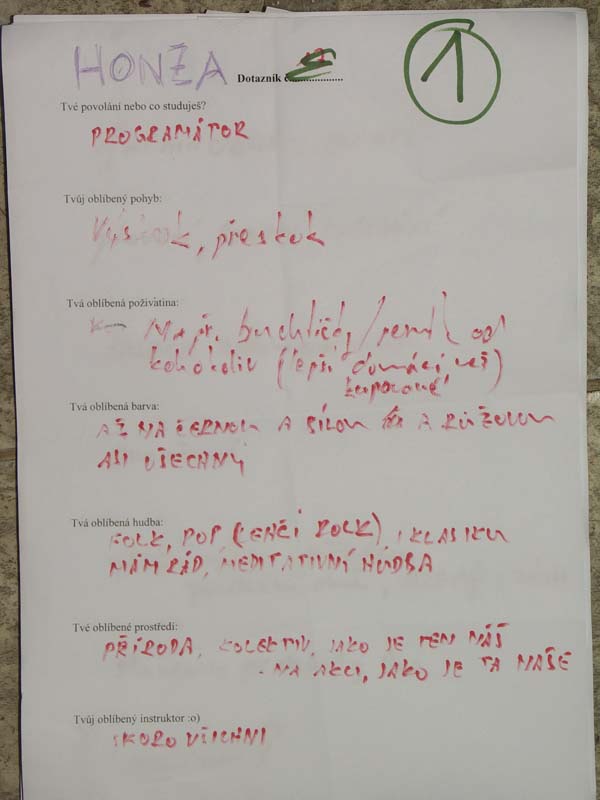 HONZA
Dotazník č.
1
Tvé povolání nebo co studuješ?
PROGRAMÁTOR
Tvůj oblíbený pohyb:
, přeskok
Tvá oblíbená poživatina:
Např. buchtičky / perník od
kohokoliv (lepší domácí než
kupované)
Tvá oblíbená barva:
AŽ NA ČERNOU A BÍLOU A RŮŽOVOU
ASI VŠECHNY
Tvá oblíbená hudba:
FOLK, POP (LEHČÍ ROCK), I KLASIKU
MÁM RÁD, MEDITATIVNÝ HUDBA
Tvé oblíbené prostředí:
PŘÍRODA, KOLEKTIV, JAKO JE TEN NÁŠ
- NA AKCI, JAKO JE TA NAŠE
Tvůj oblíbený instruktor :o)
SKORO VŠICHNI